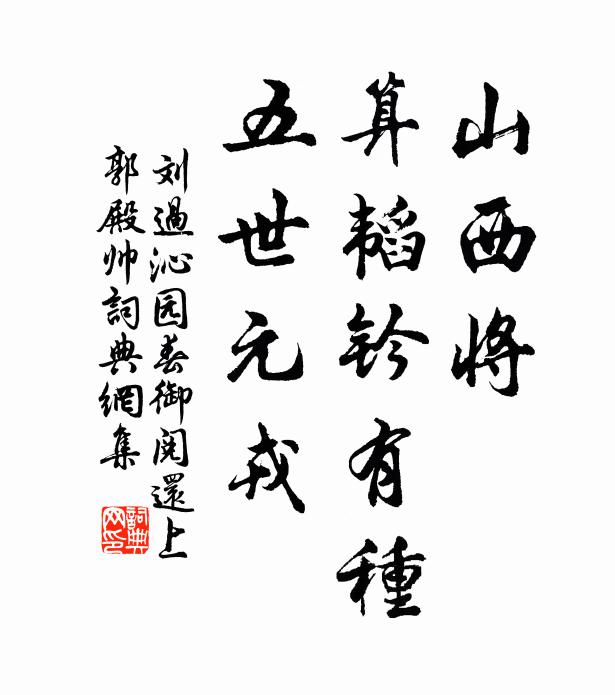 山西将
算韬钤有種
五世元戎
刘過沁园春御閱還上
郭殿帅詞典網集
詞典网印